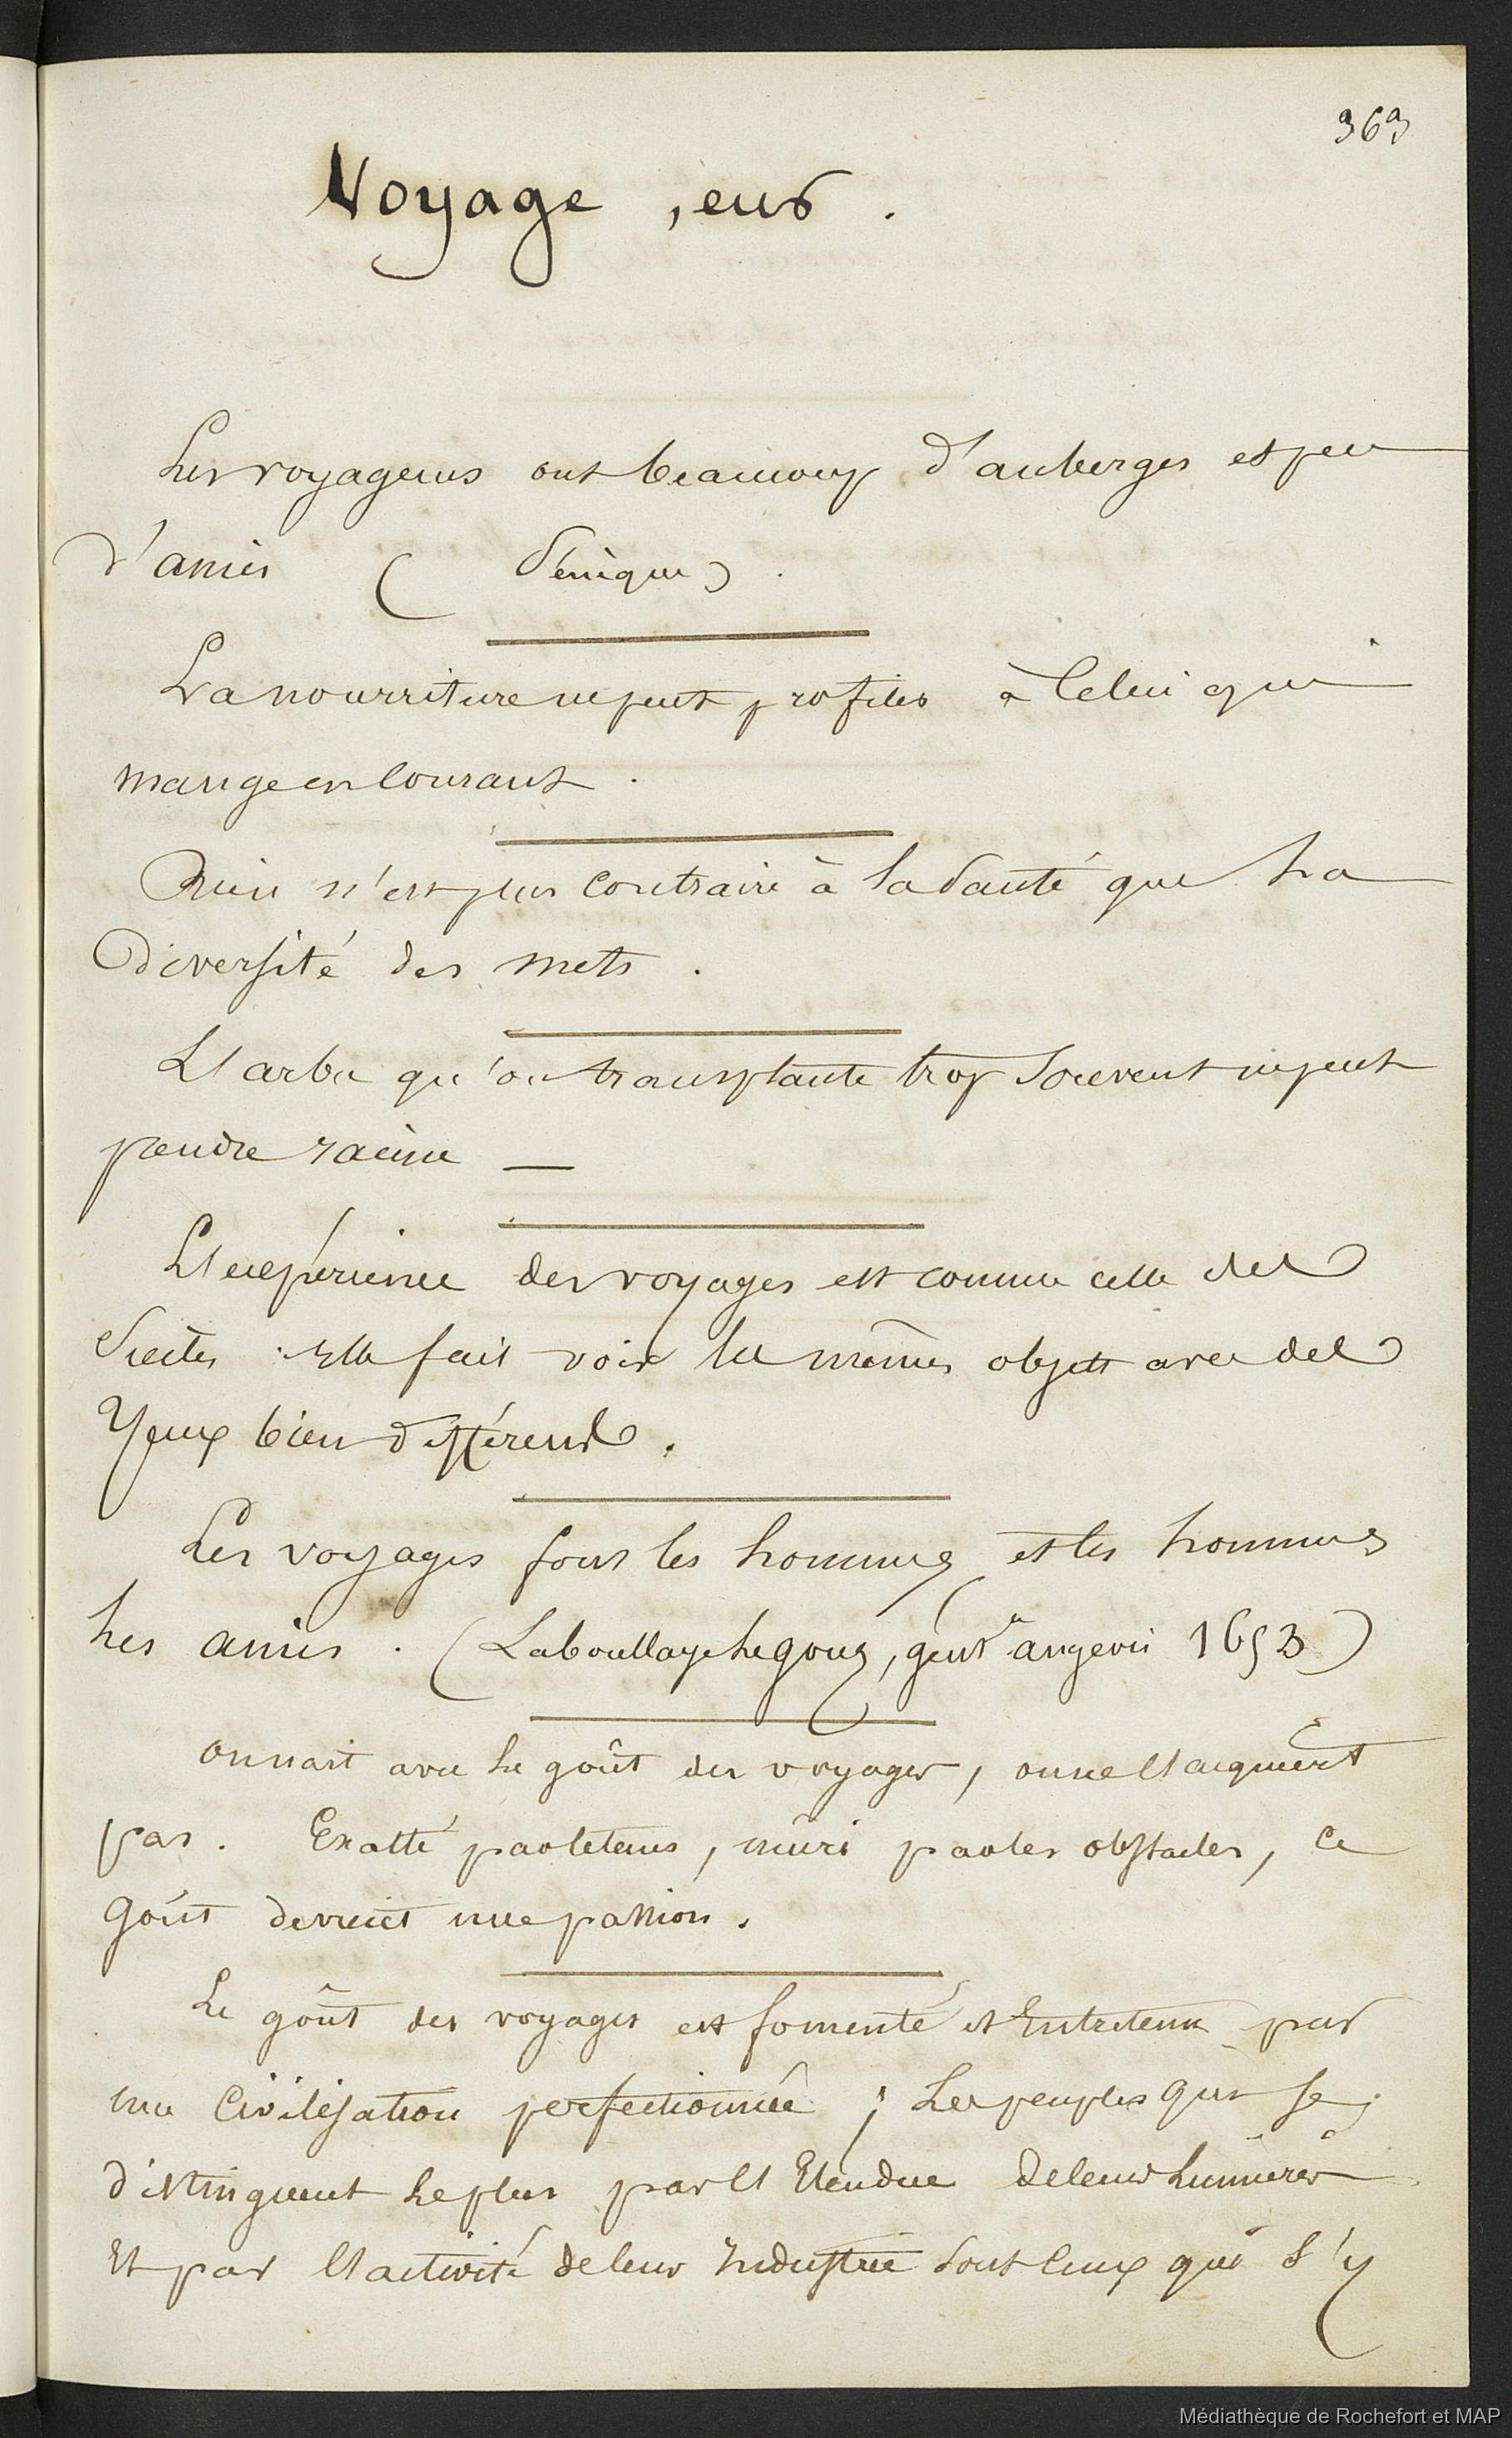 363
Voyage, eur.
Les voyageurs ont beaucoup d'auberges et peu
d'amis ( Sénèque ) .
La nourriture ne peut profiter à celui qui
mange en courant .
Rien n'est plus contraire à la Santé que la
diversité des mets .
L'arbre qu'on transplante trop souvent ne peut
prendre racine —
L'expérience des voyages est comme celle des
Siècles : Elle fait voir les mêmes objets avec des
yeux bien différends .
Les voyages font les hommes et les hommes
les amis . ( Laboullaye le gouz , gent angevin 1653 )
on nait avec le goût des voyages , on ne l'acquiert
pas . Exalté par le tems , mûri par les obstacles , ce
goût devient une passion .
Le goût des voyages est fomenté et Entretenu par
une Civilisation perfectionnée ; Les peuples qui se
distinguent le plus par l'Etendue de leurs lumières
Et par l'activité de leur Industrie sont ceux qui s'y
Médiathèque de Rochefort et MAP